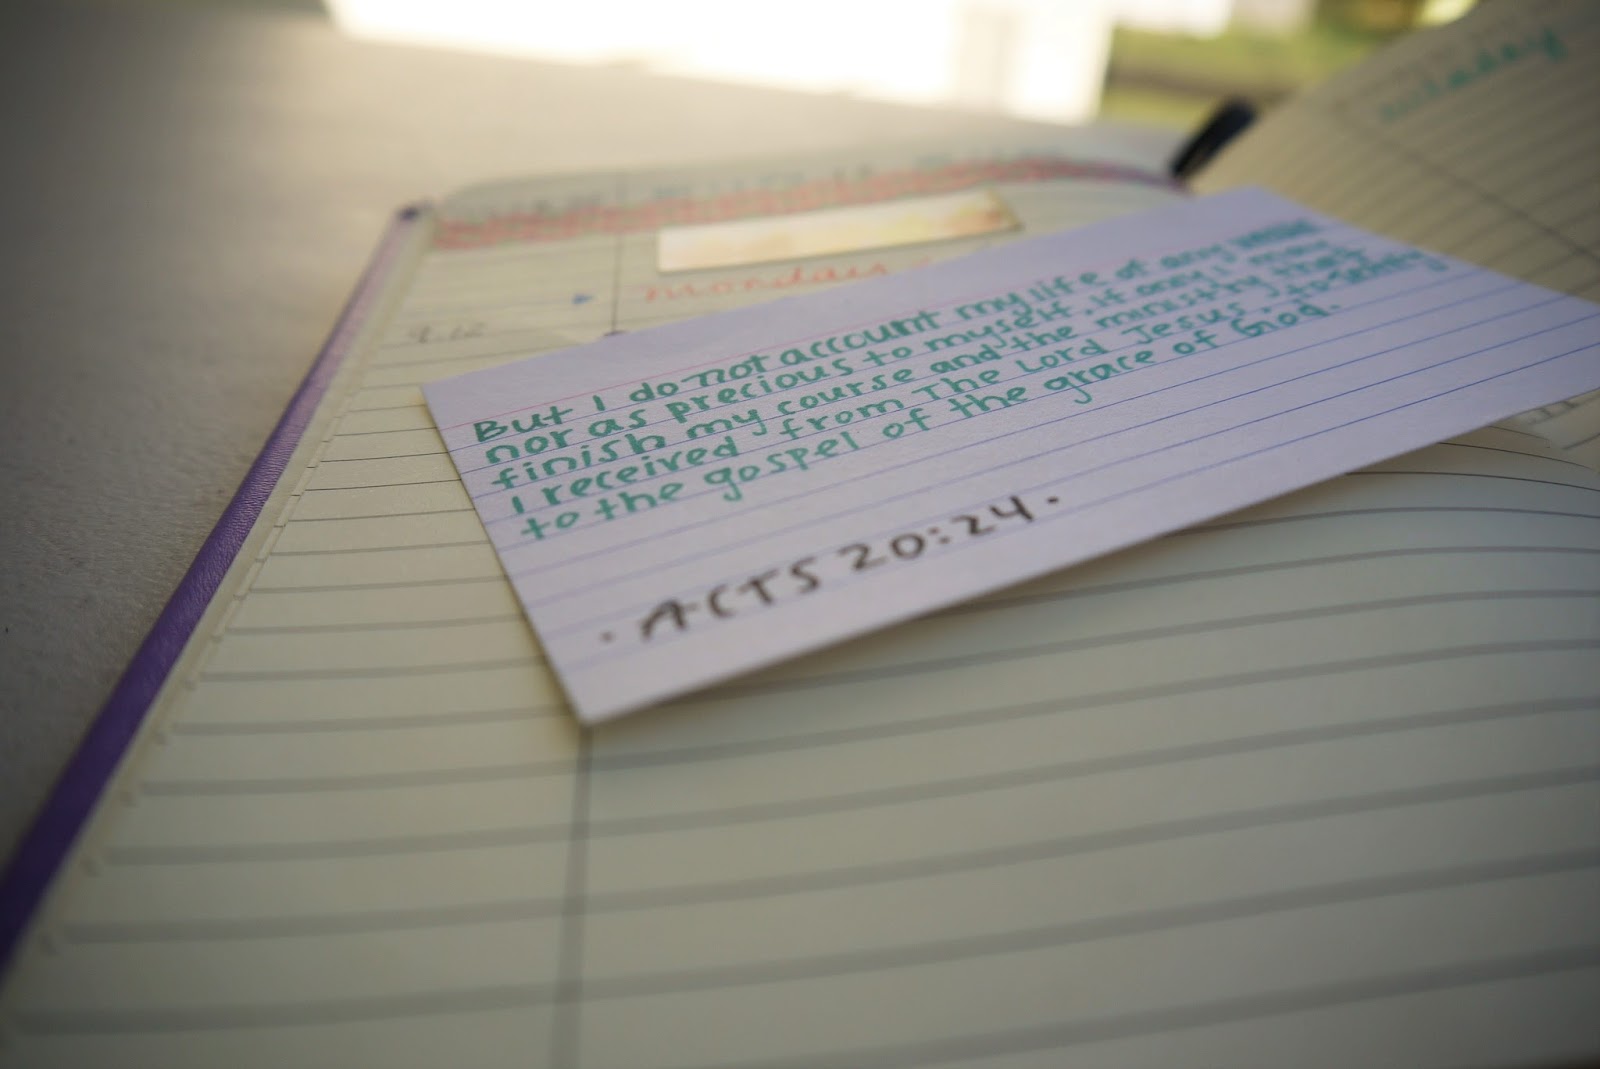 monday
9.12
But I do not account my life of any value
nor as precious to myself, if only I may
finish my course and the ministry that
I received from The Lord Jesus, to testify
to the gospel of the grace of God.
· ACTS 20:24 ·